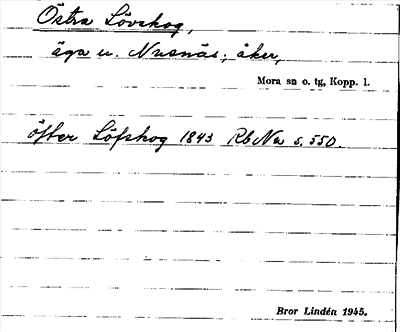 Östra Lövskog,
äga u. Nusnäs; åker,
Mora sn o. tg, Kopp. l.
öster Löfskog 1843 Rb Nu s. 550.
Bror Lindén 1945.